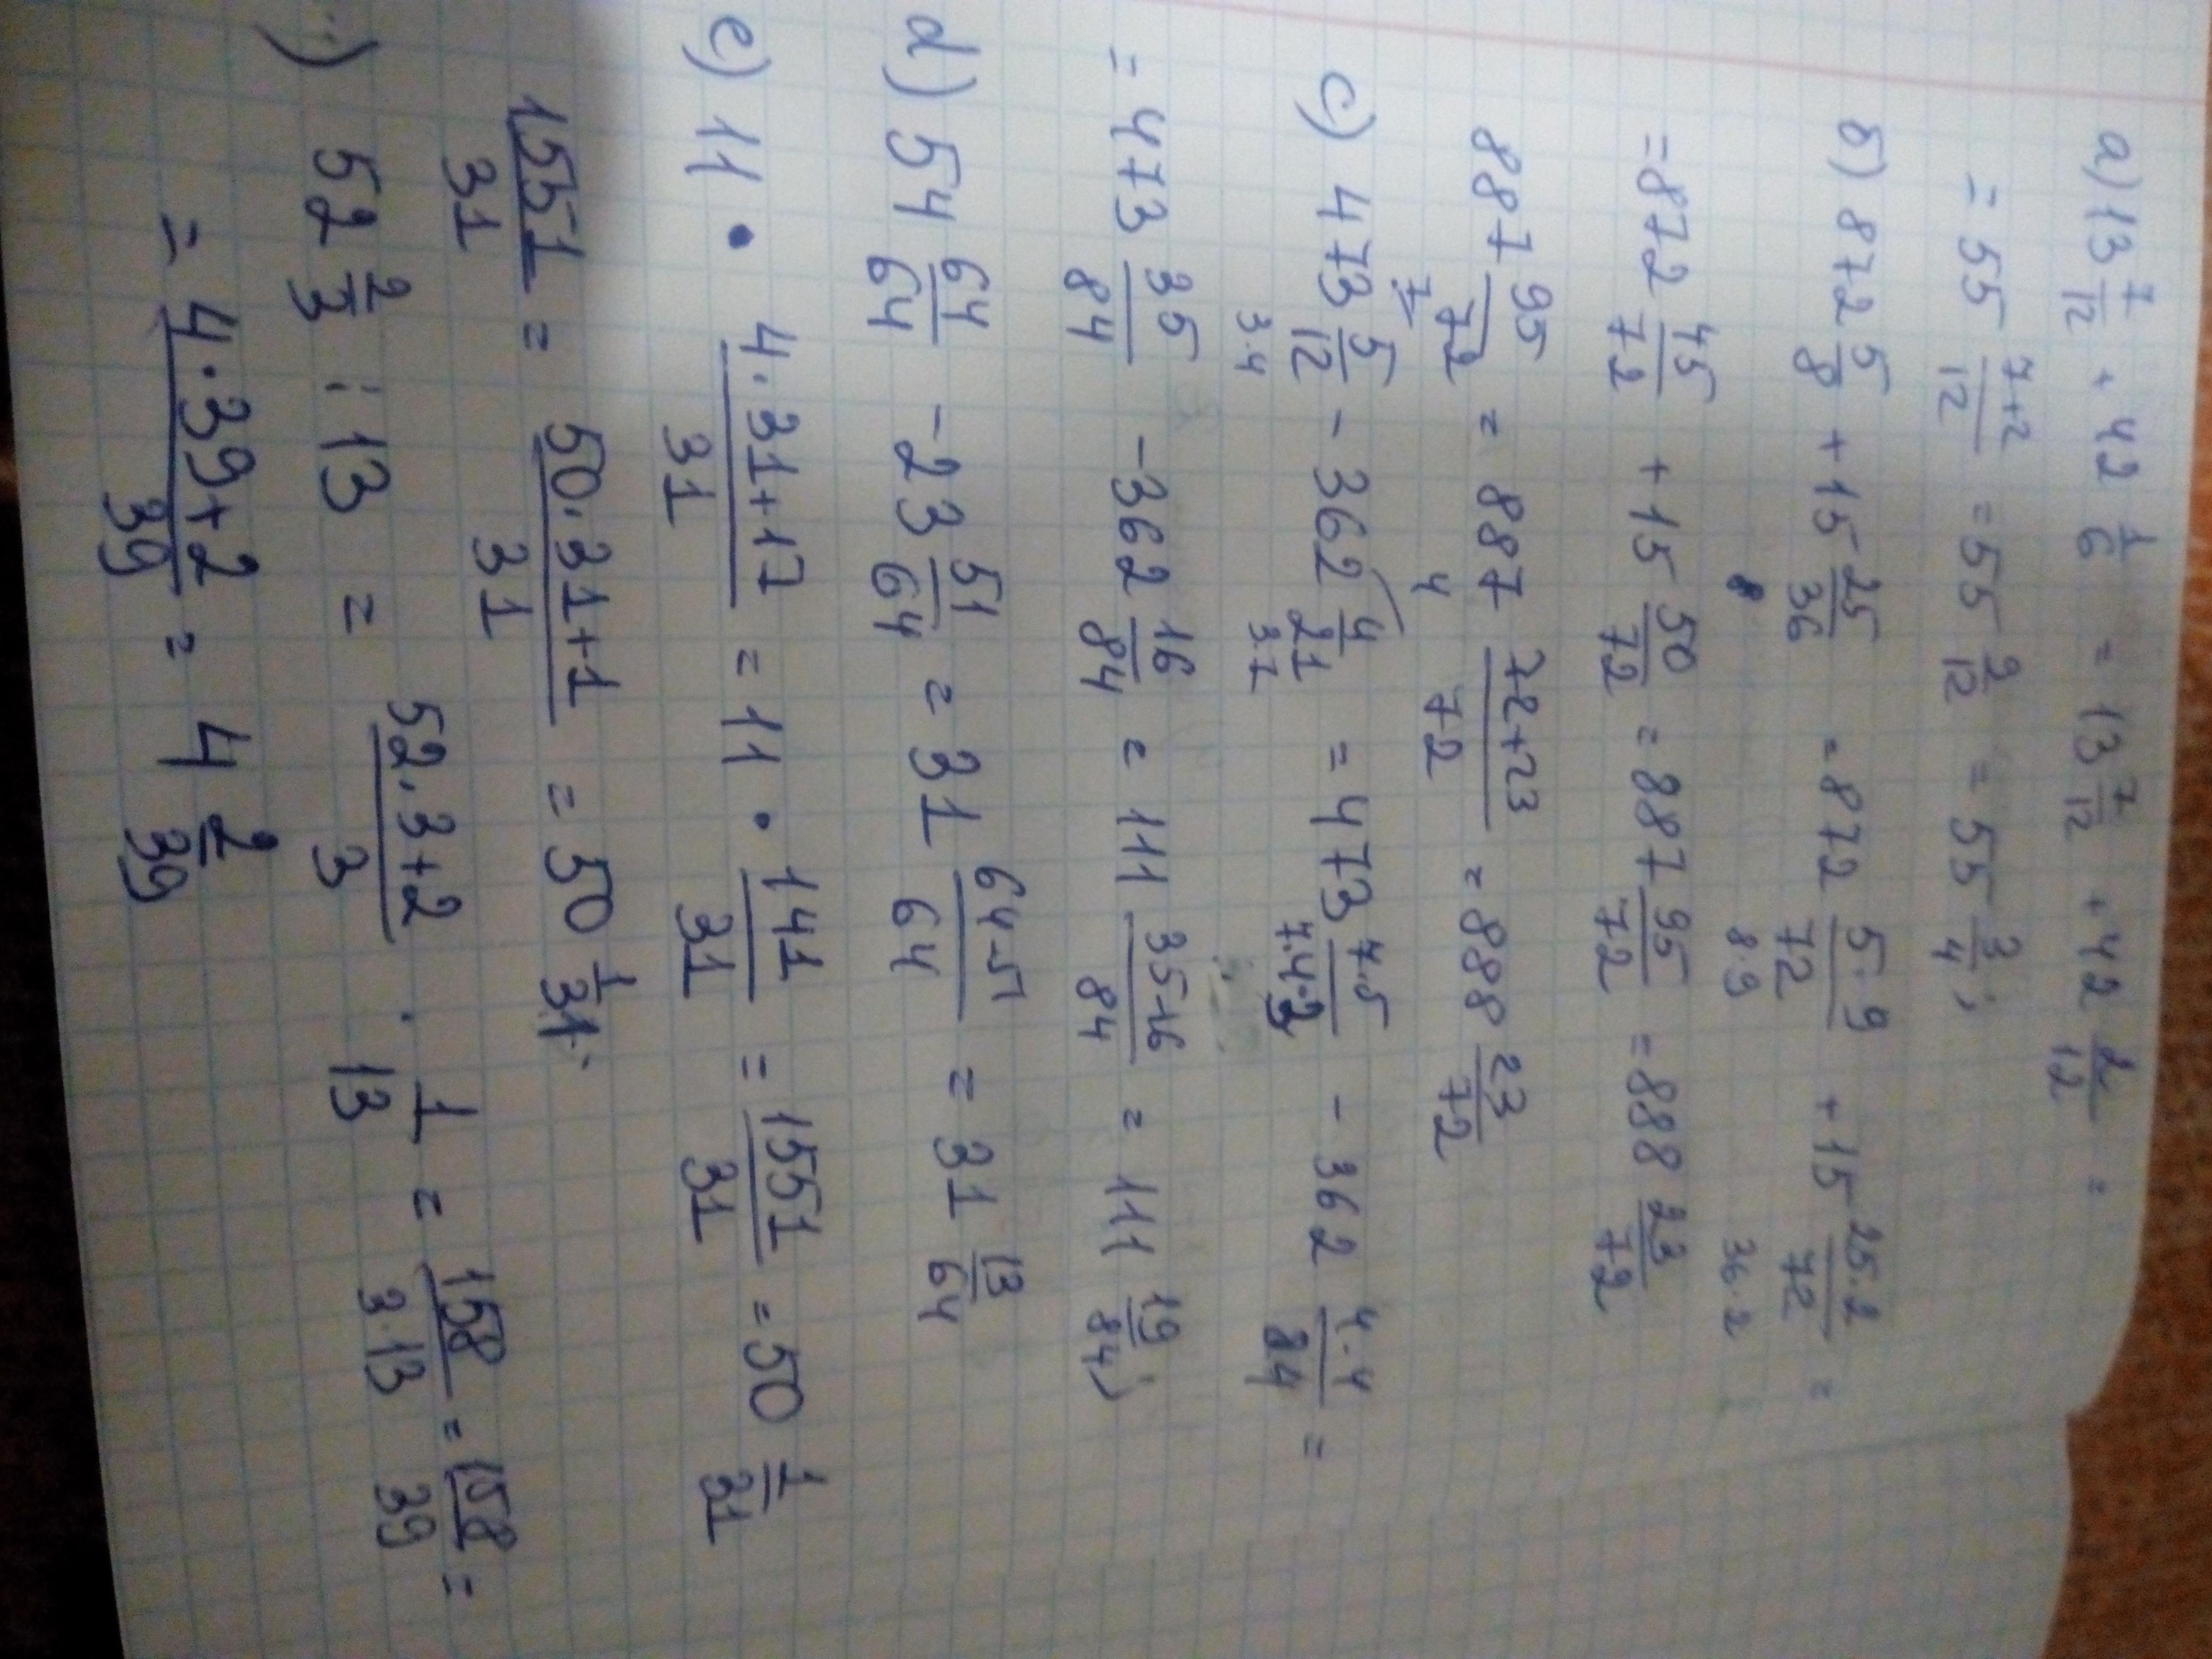 а) 13 7/12 + 42 1/6 = 13 7/12 + 42 2/12 =
= 55 (7+2)/12 = 55 9/12 = 55 3/4;
б) 872 5/8 + 15 25/36 = 872 (5·9)/72 + 15 (25·2)/72 =
8·9 36·2
= 872 45/72 + 15 50/72 = 887 95/72 = 888 23/72
887 95/72 = 887 (72+23)/72 = 888 23/72
7 4
c) 473 5/12 - 362 4/21 = 473 (7·5)/(7·4·3) - 362 (4·4)/84 =
3·4 3·7
= 473 35/84 - 362 16/84 = 111 (35-16)/84 = 111 19/84;
d) 54 64/64 - 23 51/64 = 31 (64-51)/64 = 31 13/64
e) 11 · (4·31+17)/31 = 11 · 141/31 = 1551/31 = 50 1/31
1551/31 = (50·31+1)/31 = 50 1/31.
) 52 2/3 : 13 = (52·3+2)/3 · 1/13 = 158/(3·13) = 158/39 =
= (4·39+2)/39 = 4 2/39